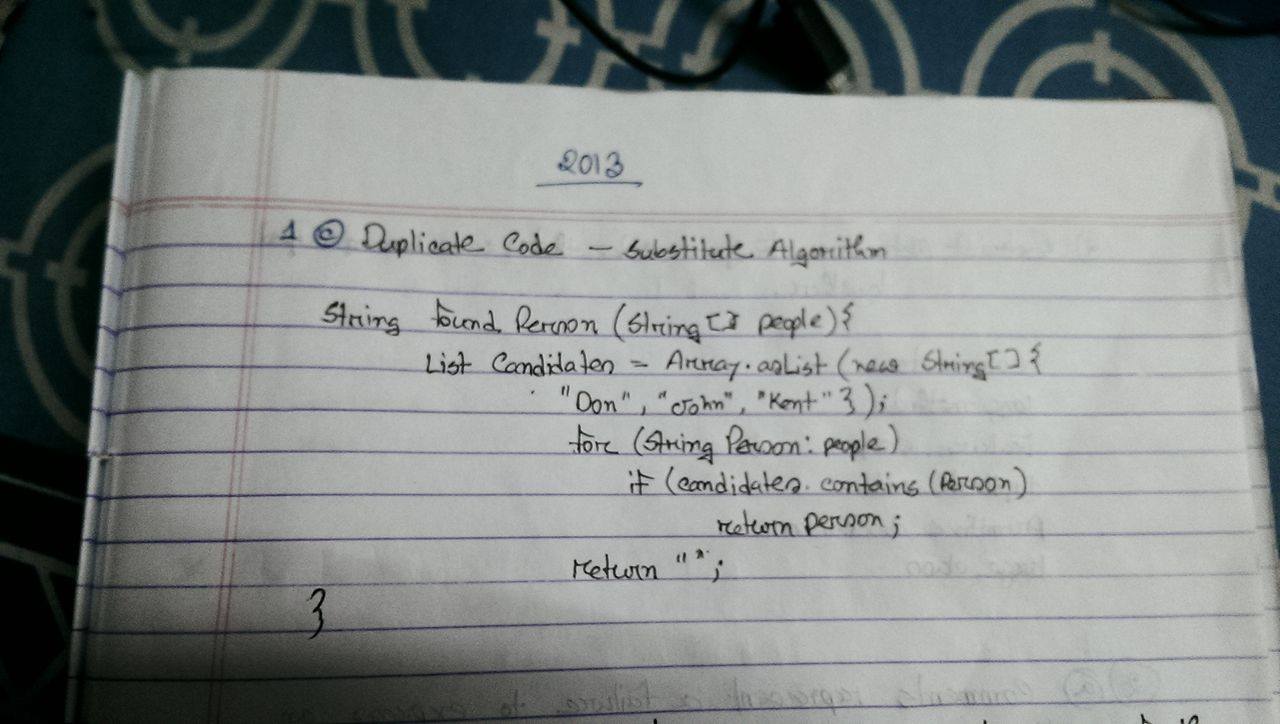 2013
1 (c) Duplicate Code - Substitute Algorithm
String found Person (String [] people){
List Candidates = Array.asList (new String[]{
"Don", "John", "Kent" });
for (String Person: people)
if (candidates.contains (Person)
return person;
return "";
}